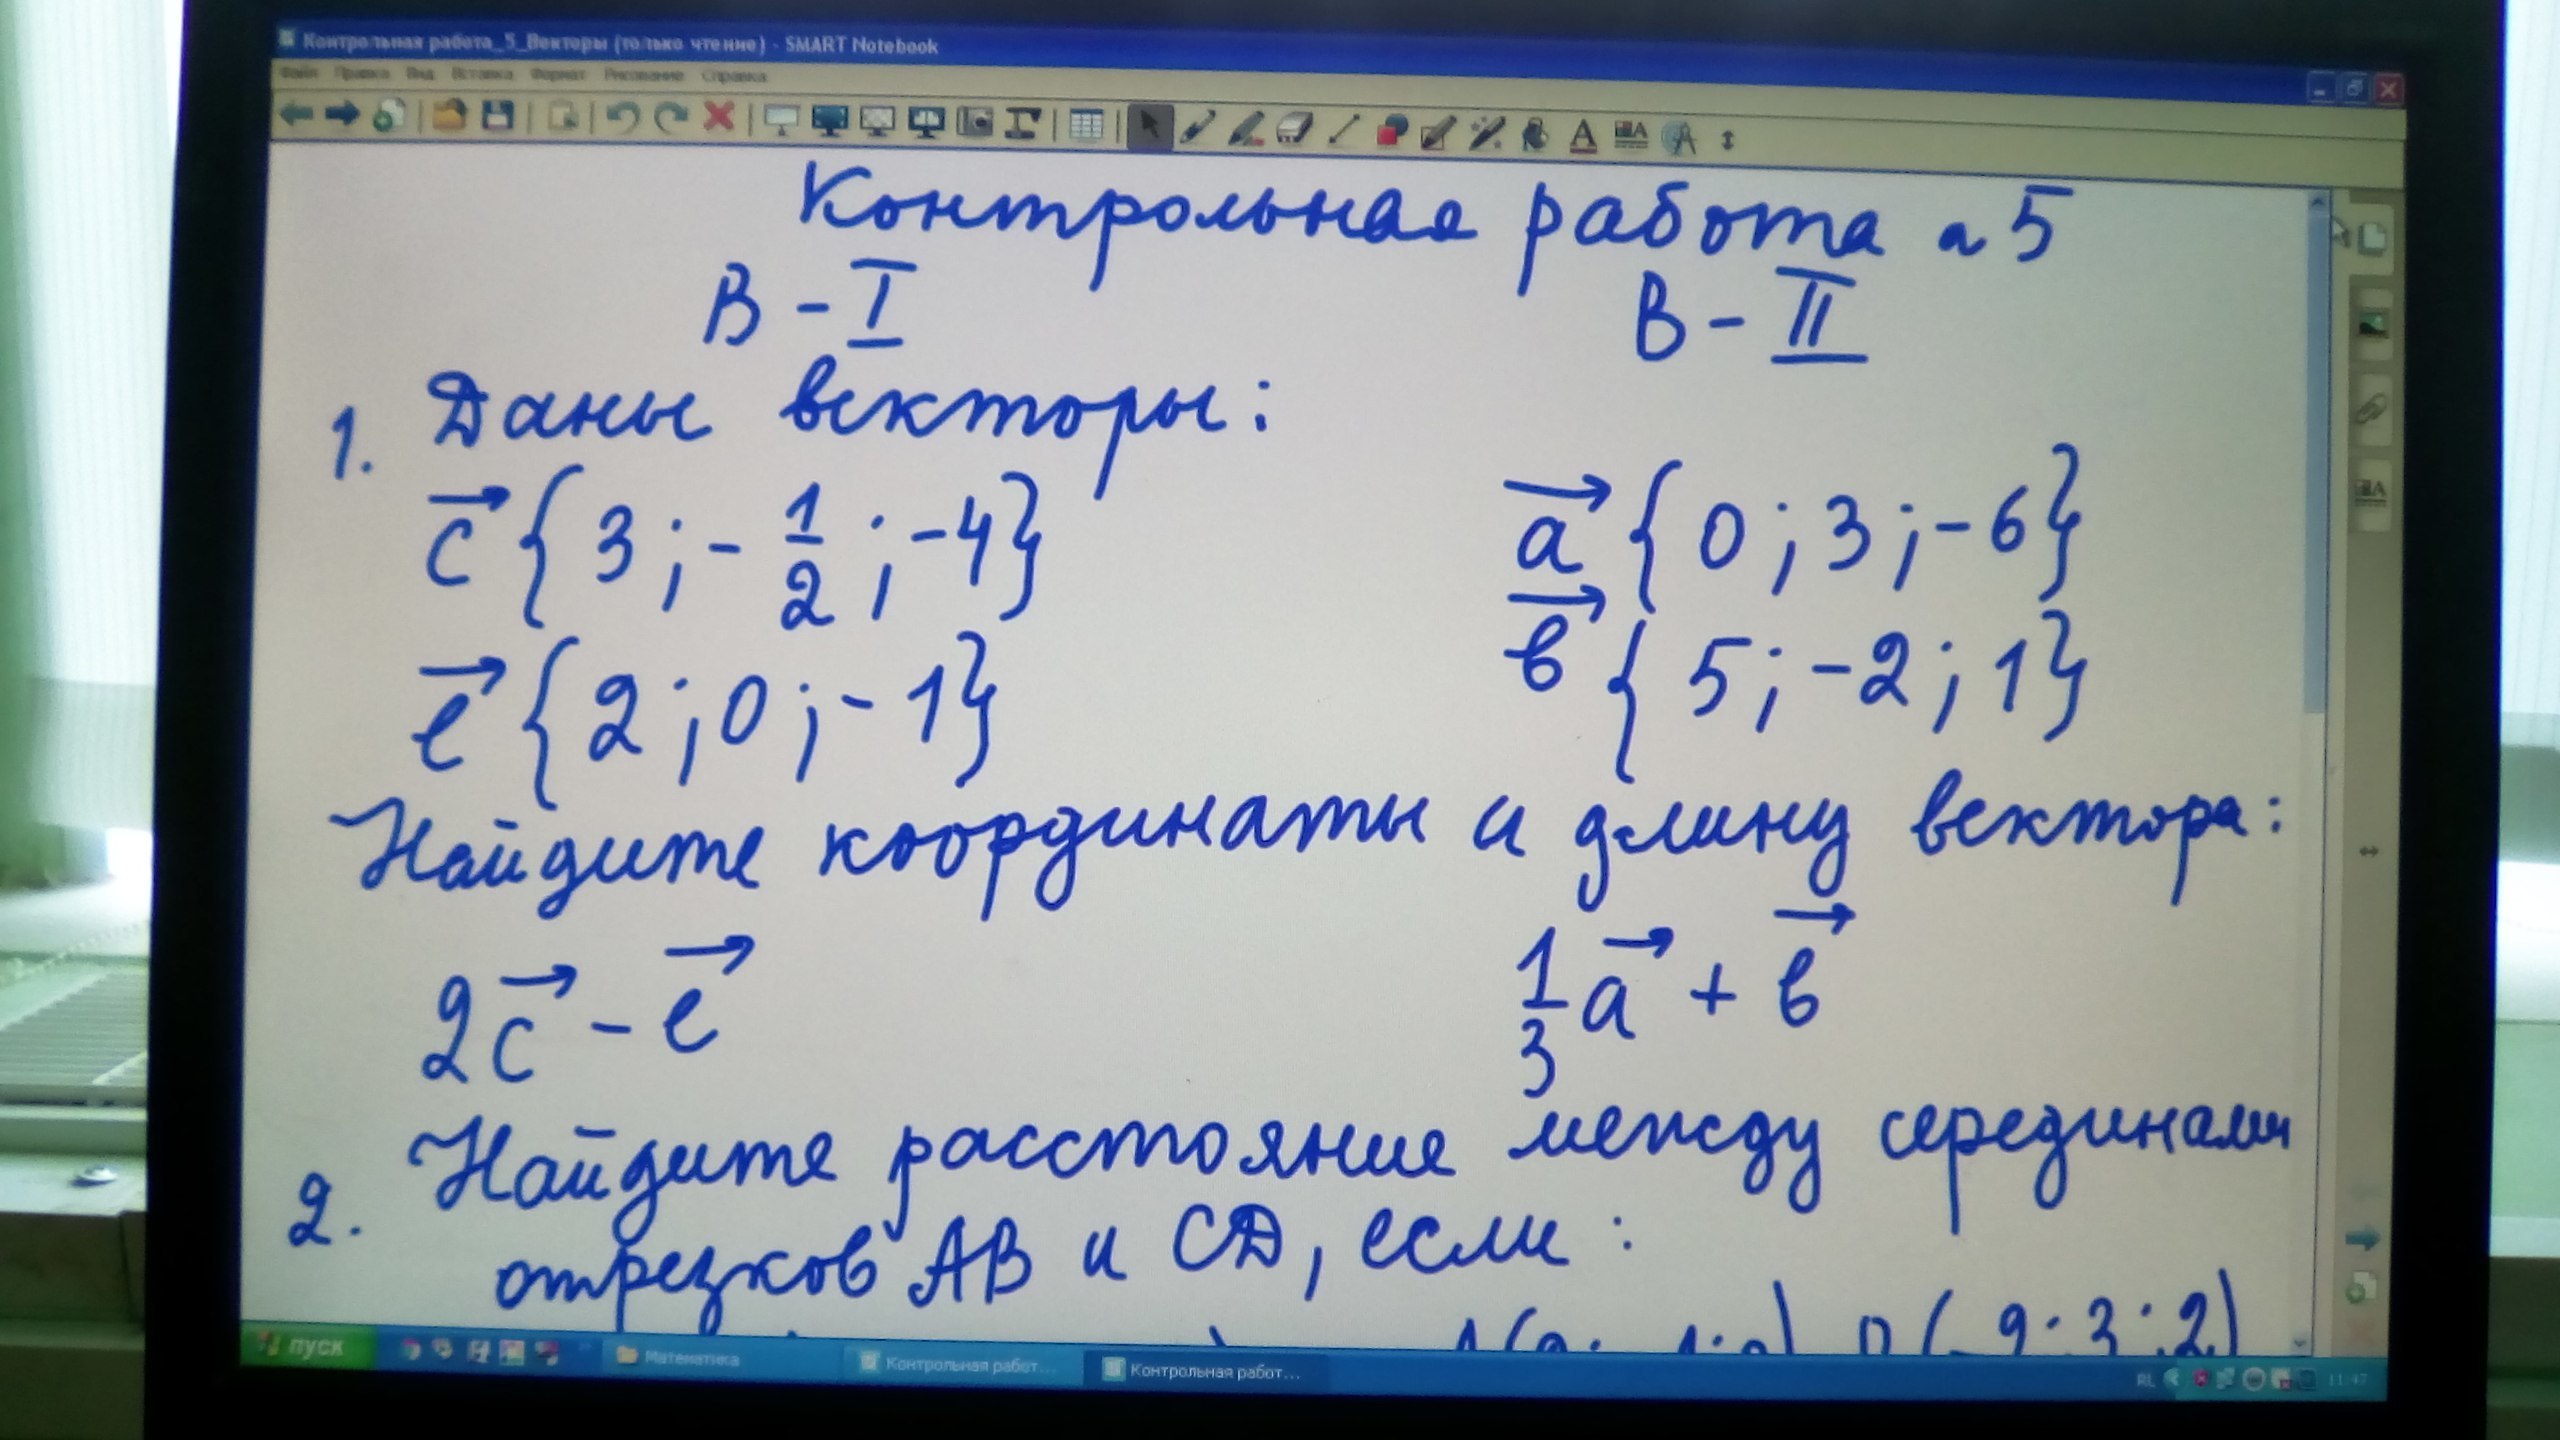 Контрольная работа_5_Векторы (только чтение) - SMART Notebook
Файл Правка Вид Вставка Формат Рисование Справка
Контрольная работа № 5
В - I
В - II
1. Даны векторы:
c {3; -1/2; -4}
a {0; 3; -6}
e {2; 0; -1}
в {5; -2; 1}
Найдите координаты и длину вектора:
2c - e
1/3 a + в
2. Найдите расстояние между серединами
отрезков АВ и СD, если:
пуск
Математика
Контрольная работ...
Контрольная работ...
RL
11:47